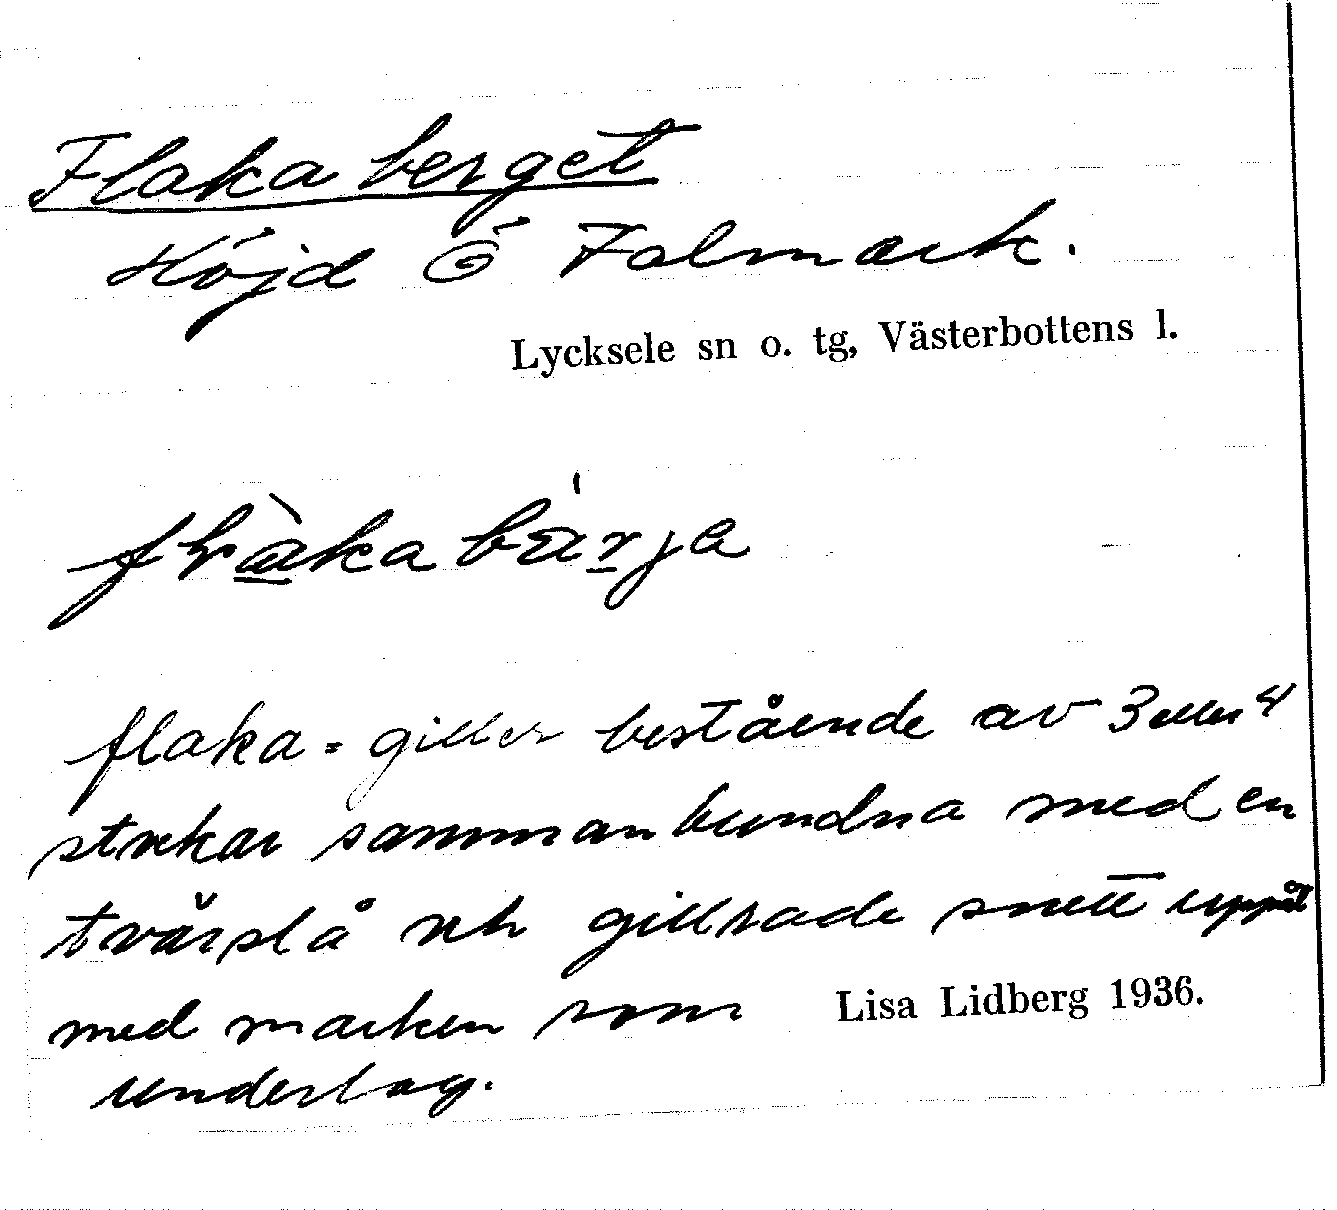 Flakaberget
Höjd Ö Falmark.
Lycksele sn o. tg, Västerbottens l.
flaka = giller bestående av 3 eller 4
stockar sammanbundna med en
tvärslå och gillrade snett uppåt
med marken som
Lisa Lidberg 1936.
underlag.